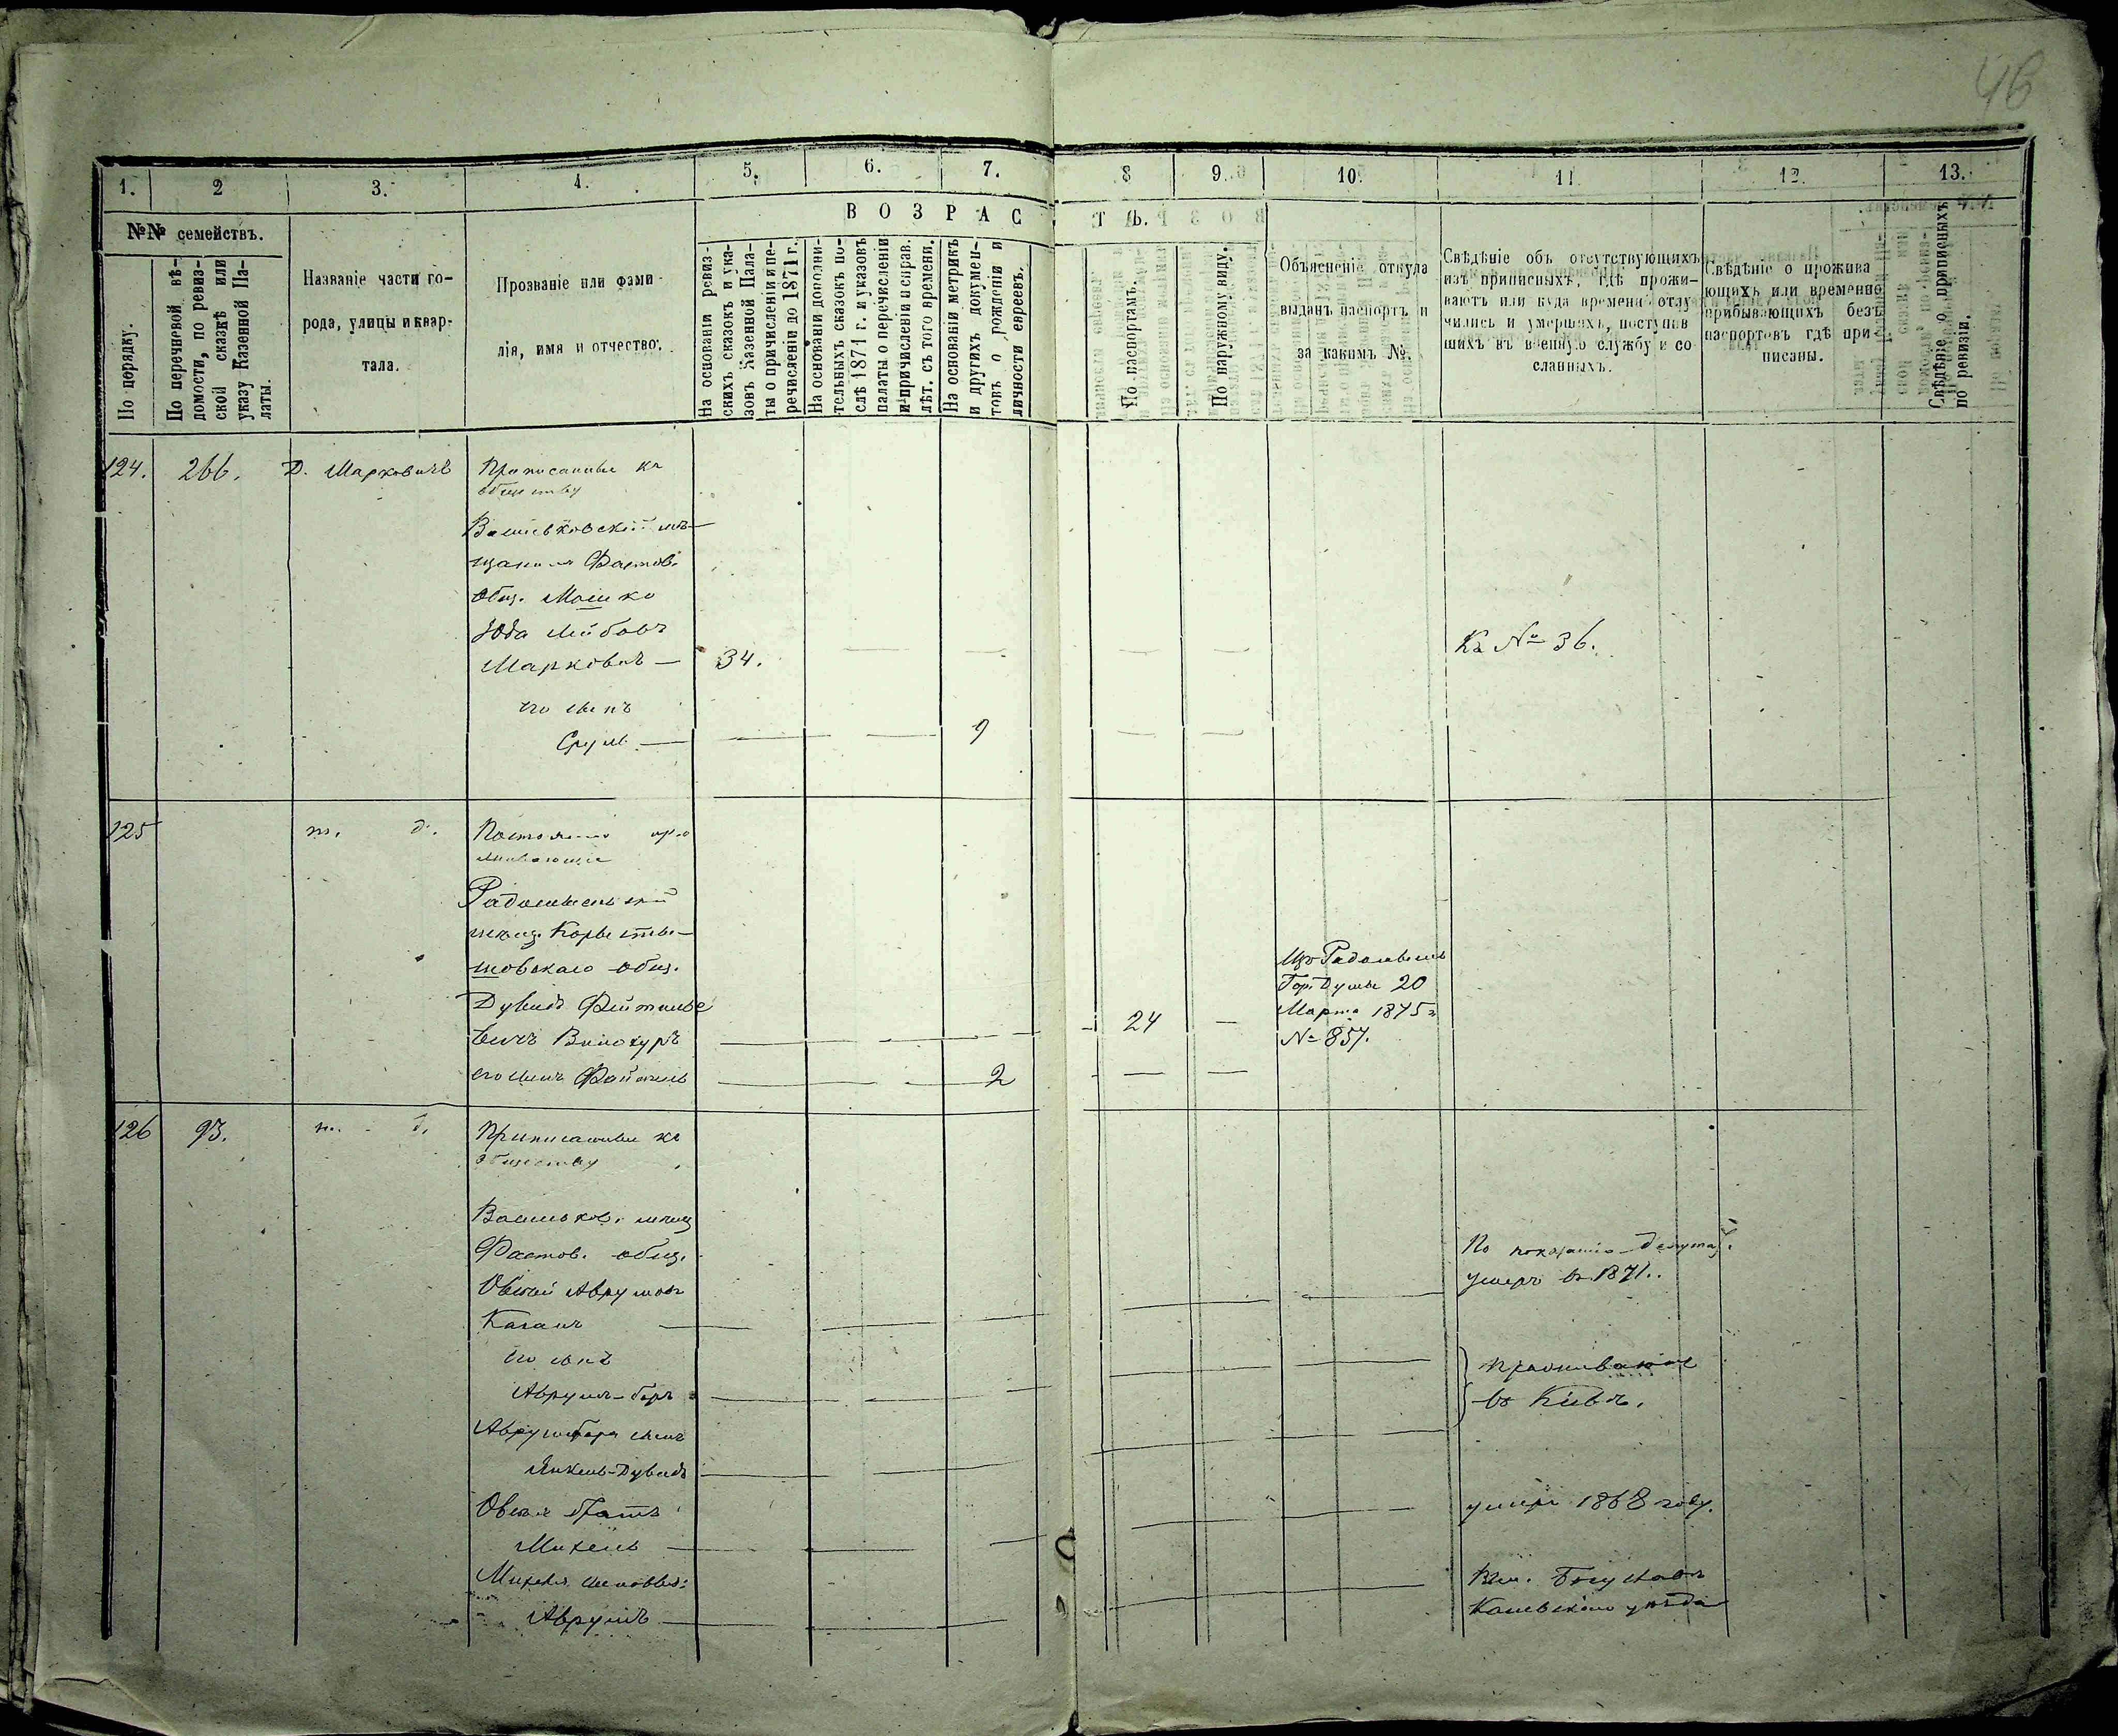 46
1. 2 3. 4. 5. 6. 7. 8 9. 10. 11. 12. 13.
№№ семействъ.
В О З Р А С Т Ъ.
По порядку.
По перечневой вѣ-
домости, по ревиз-
ской сказкѣ или
указу Казенной Па-
латы.
Названіе части го-
рода, улицы и квар-
тала.
Прозваніе или фами-
лія, имя и отчество.
На основаніи ревиз-
скихъ сказокъ и ука-
зовъ Казенной Пала-
ты о причисленіи и пе-
речисленіи до 1871 г.
На основаніи дополни-
тельныхъ сказокъ по-
слѣ 1871 г. и указовъ
палаты о перечисленіи
и причисленіи и справ.
лѣт. съ того времени.
На основаніи метрикъ
и другихъ докумен-
товъ о рожденіи и
личности евреевъ.
По паспортамъ.
По наружному виду.
Объясненіе откуда
выданъ паспортъ и
за какимъ №.
Свѣдѣніе объ отсутствующихъ
изъ приписныхъ, гдѣ прожи-
ваютъ или куда времени отлу
чились и умершихъ, поступив
шихъ въ военную службу и со
сланныхъ.
Свѣдѣніе о прожива
ющихъ или временно
прибывающихъ безъ
паспортовъ гдѣ при-
писаны.
Свѣдѣніе о приписныхъ
по ревизіи.
124. 266. Д. Марковичъ Приписанные къ
обществу
Васильковскій мѣ-
щанинъ Фастов.
общ. Мошко
Юда Лейбовъ
Марковичъ — 34. Къ № 36.
его сынъ
Сруль — 9
125 т. д. Постоянно про
живающіе
Радомысльскій
мѣщ. Коросты-
шовскаго общ.
Дувидъ Фейтелье
вичъ Винокуръ 24
Изъ Радомысль
Гор. Думы 20
Марта 1875 г.
№ 857.
его сынъ Файтель 2
126 93. т. д. Приписанные къ
обществу
Васильков. мѣщ
Фастов. общ.
Овсей Аврумовъ
Каганъ
По показанію депутат.
умеръ въ 1871.
его сынъ
Аврумъ-Беръ
Проживаютъ
въ Кіевѣ.
Аврумъ-Бера сынъ
Янкель-Дувидъ
Овсея братъ
Михель
умеръ 1868 году.
Михеля сыновья:
Аврумъ
Въ м. Богуславѣ
Каневскаго уѣзда